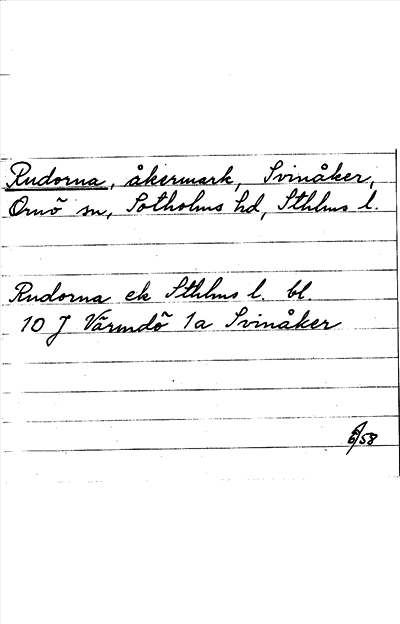 Rudorna, åkermark, Svinåker,
Ornö sn, Sotholms hd, Sthlms l.
Rudorna ek Sthlms l. bl.
10 J Värmdö 1a Svinåker
6/58